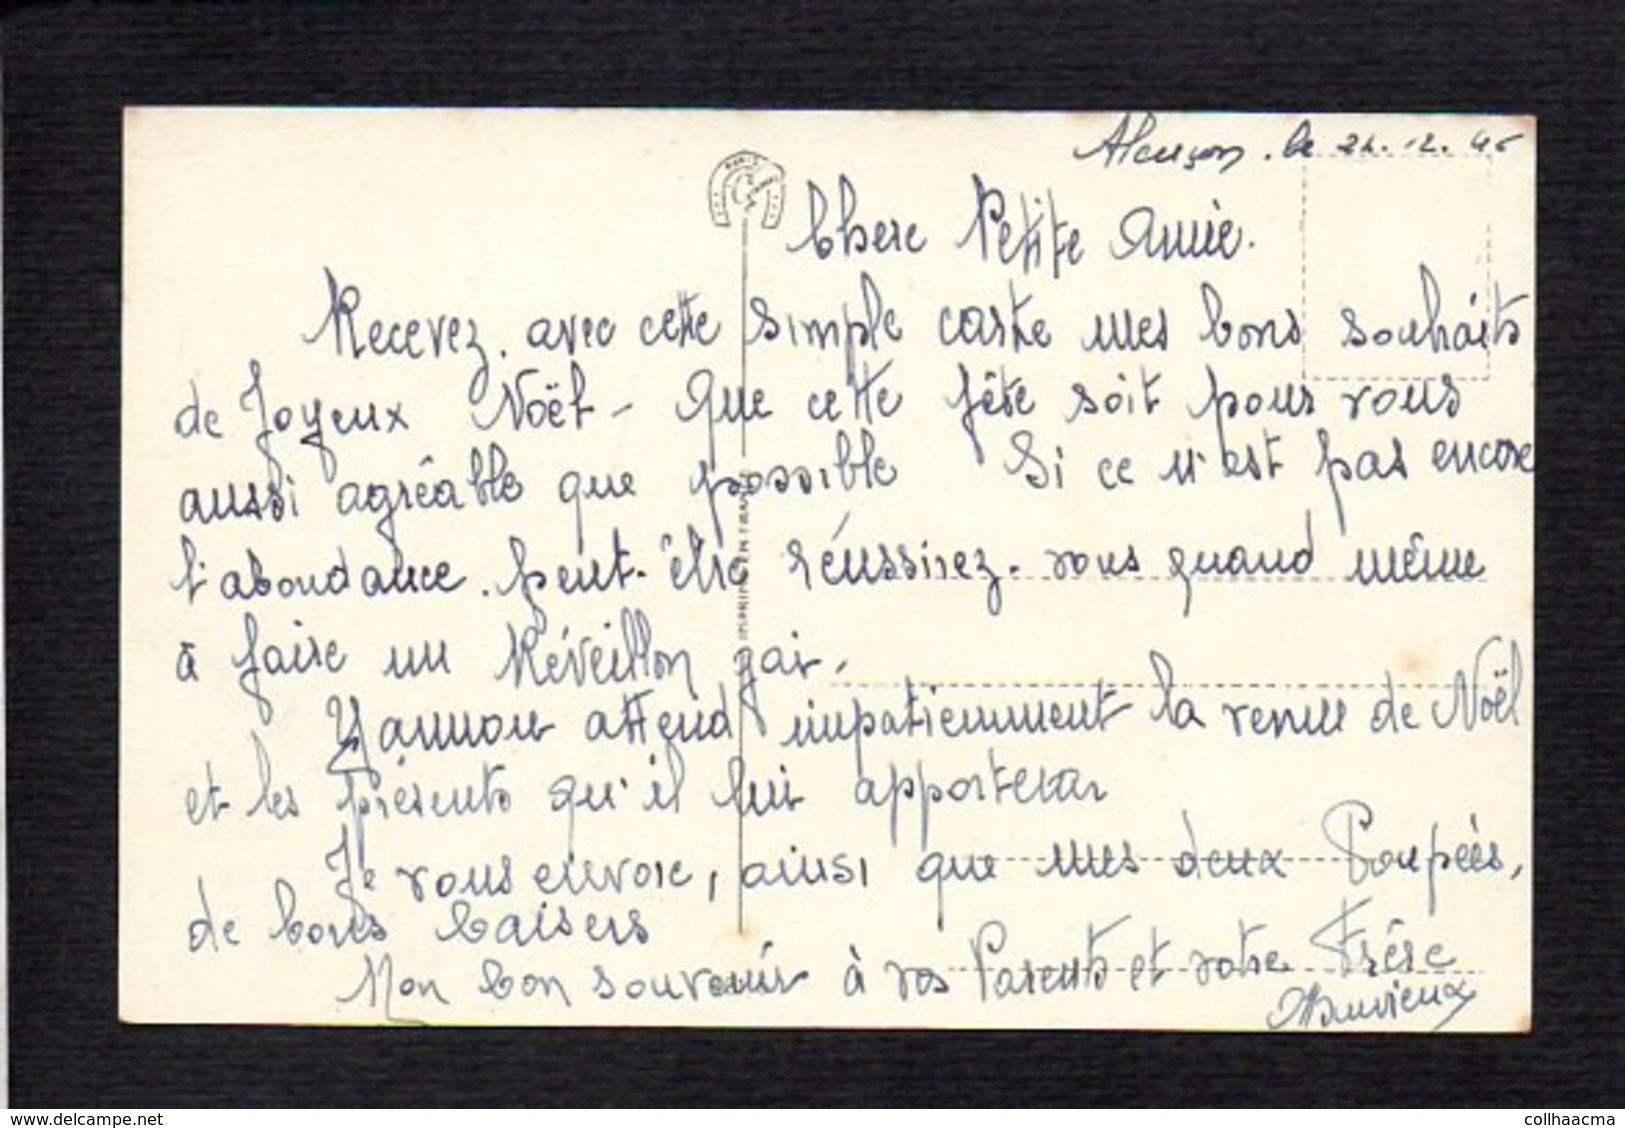 Alençon. le 24.12.45
Chere Petite Amie.
Recevez. avec cette simple carte mes bons souhaits
de Joyeux Noël - Que cette fête soit pour vous
aussi agréable que possible Si ce n'est pas encore
l'abondance. peut-être réussirez-vous quand même
à faire un Réveillon gai.
Yannou attend impatiemment la venue de Noël
et les présents qu'il lui apportera
Je vous envoie, ainsi que mes deux Poupées,
de bons baisers
Mon bon souvenir à vos Parents et votre Frère
IMPRIMÉ EN FRANCE
PARIS
www.delcampe.net
collhaacma